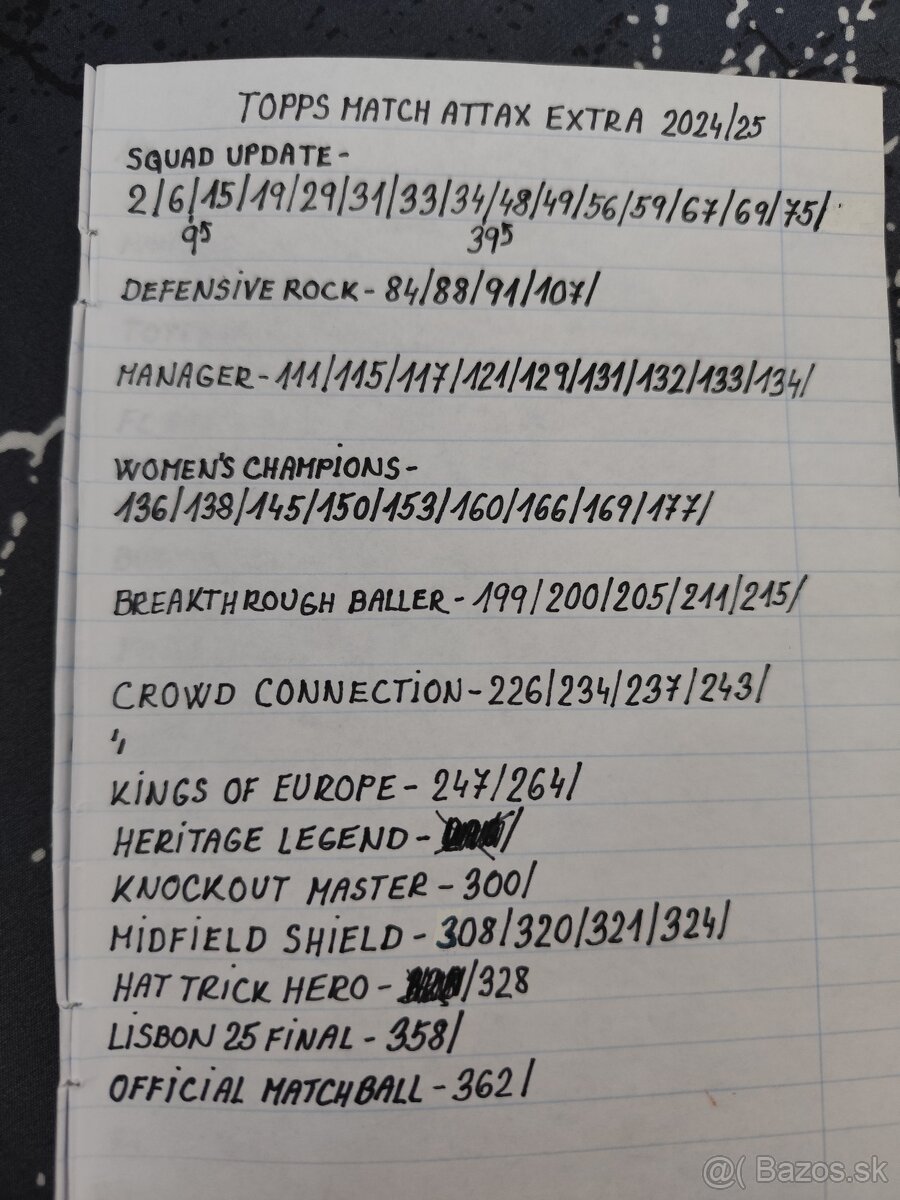 TOPPS MATCH ATTAX EXTRA 2024/25
SQUAD UPDATE-
2/6/15/19/29/31/33/34/48/49/56/59/67/69/75/
95 395
DEFENSIVE ROCK-84/88/91/107/
MANAGER-111/115/117/121/129/131/132/133/134/
WOMEN'S CHAMPIONS-
136/138/145/150/153/160/166/169/177/
BREAKTHROUGH BALLER-199/200/205/211/215/
CROWD CONNECTION-226/234/237/243/
KINGS OF EUROPE-247/264/
HERITAGE LEGEND-/
KNOCKOUT MASTER-300/
MIDFIELD SHIELD-308/320/321/324/
HAT TRICK HERO-/328
LISBON 25 FINAL-358/
OFFICIAL MATCHBALL-362/
@( Bazos.sk